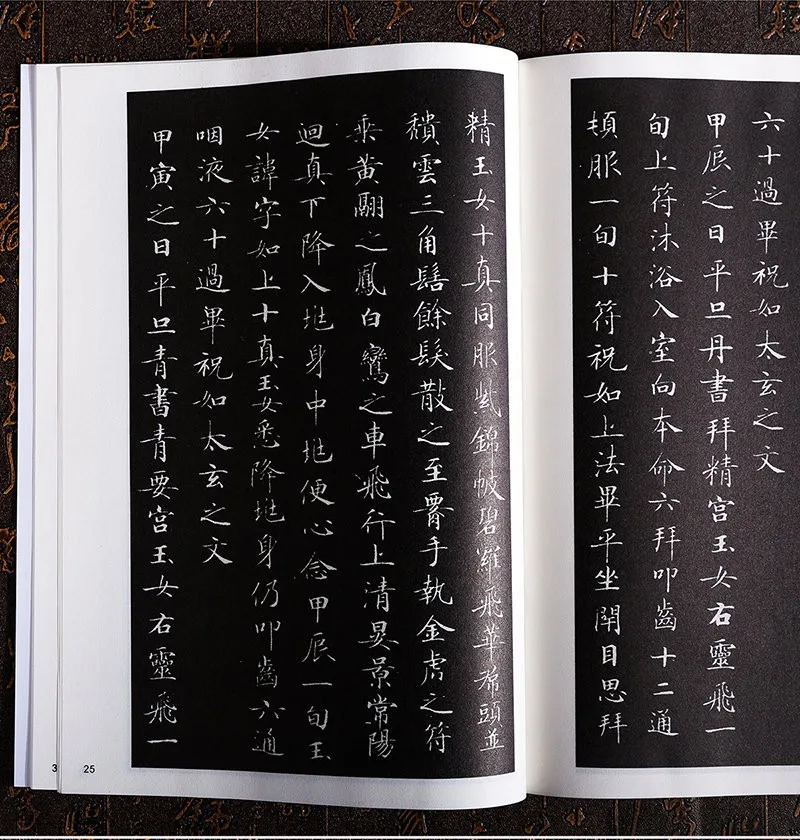 六十過畢祝如太玄之文
甲辰之日平旦丹書拜精宫玉女右靈飛一
旬上符沐浴入室向本命六拜叩齒十二通
頓服一旬十符祝如上法畢平坐閇目思拜
精玉女十真同服紫錦帔碧羅飛華帬頭並
穨雲三角髻餘髮散之至署手執金虎之符
乘黄翮之鳳白鸞之車飛行上清晏景常陽
迴真下降入𡉏身中𡉏便心念甲辰一旬玉
女諱字如上十真玉女悉降𡉏身仍叩齒六通
咽液六十過畢祝如太玄之文
甲寅之日平旦青書青要宫玉女右靈飛一
3 25